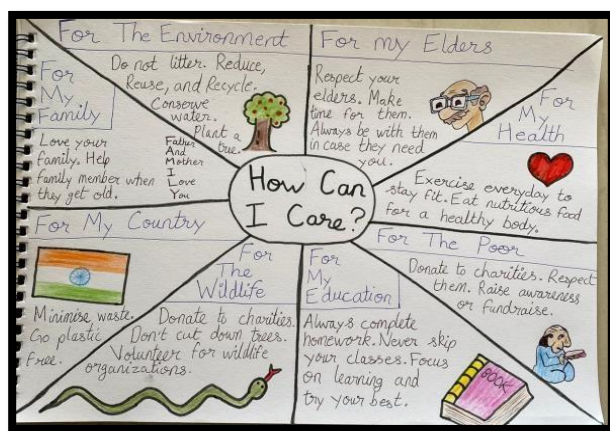 For The Environment
Do not litter. Reduce,
Reuse, and Recycle.
Conserve
water.
Plant a
tree.
For my Elders
Respect your
elders. Make
time for them.
Always be with them
in case they need
you.
For
My
Health
Exercise everyday to
stay fit. Eat nutritious food
for a healthy body.
For The Poor
Donate to charities. Respect
them. Raise awareness
or fundraise.
For
My
Education
Always complete
homework. Never skip
your classes. Focus
on learning and
try your best.
BOOK
For
The
Wildlife
Donate to charities.
Don't cut down trees.
Volunteer for wildlife
organizations.
For My Country
Minimise waste.
Go plastic
free.
For
My
Family
Love your
family. Help
family member when
they get old.
Father
And
Mother
I
Love
You
How Can
I Care?